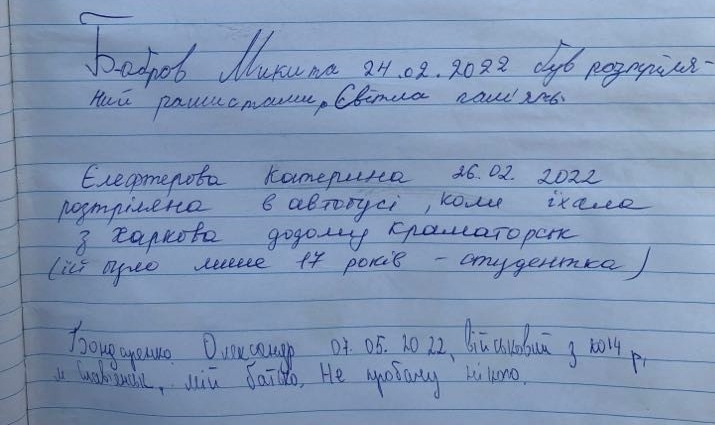 Бабров Микита 24.02.2022 був розтріля-
ний рашистами, Світла пам'ять.
Єлефтерова Катерина 26.02. 2022
розтріляна в автобусі, коли їхала
з Харкова додому Краматорськ
(їй було лише 17 років - студентка)
Бондаренко Олександр 07.05.2022, військовий з 2014 р,
м Славянськ, мій батько. Не пробачу нікого.